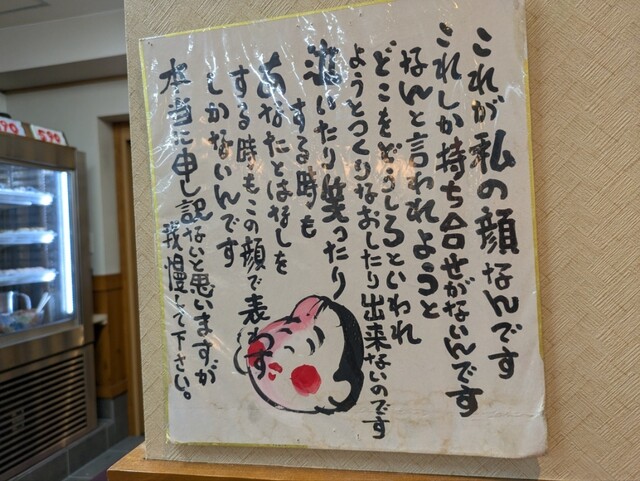 これが私の顔なんです
これしか持ち合せがないんです
なんと言われようと
どこをどうしろといわれ
ようとつくりなおしたり出来ないのです
泣いたり笑ったり
する時も
あなたとはなしを
する時もこの顔で表わす
しかないんです
本当に申し訳ないと思いますが
我慢して下さい。
590
590